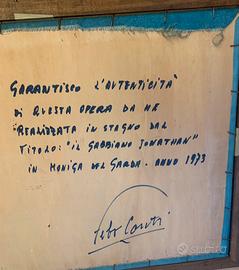 GARANTISCO L'AUTENTICITA'
DI QUESTA OPERA DA ME
REALIZZATA IN STAGNO DAL
TITOLO: "IL GABBIANO JONATHAN"
IN MONIGA DEL GARDA. ANNO 1973
subito